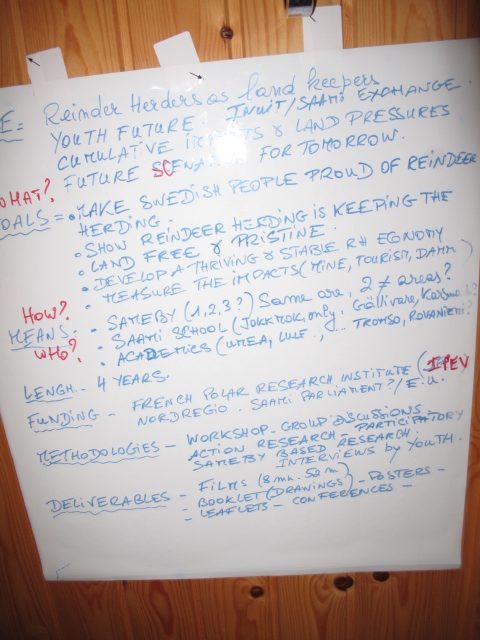 E = Reinder Herders as land keepers
YOUTH FUTURE: INUIT/SAAMI EXCHANGE.
CUMULATIVE IMPACTS & LAND PRESSURES
FUTURE SCENARIO FOR TOMORROW.
WHAT?
GOALS = • MAKE SWEDISH PEOPLE PROUD OF REINDEER
HERDING.
• SHOW REINDEER HERDING IS KEEPING THE
LAND FREE & PRISTINE.
• DEVELOP A THRIVING & STABLE RH ECONOMY
• MEASURE THE IMPACTS (MINE, TOURIST, DAMM)
HOW?
MEANS: • SAMEBY (1,2,3?) Same are, 2 ≠ areas?
WHO? • SAAMI SCHOOL (JOKKMOKK, only, Gällivare,
• ACADEMICS (UMEA, LULE, ... TROMSO, ROVANIEMI?
LENGH - 4 YEARS.
FUNDING - FRENCH POLAR RESEARCH INSTITUTE (IPEV
NORDREGIO. SAAMI PARLIAMENT?/E.U.
METHODOLOGIES - WORKSHOP - GROUP DISCUSSIONS
ACTION RESEARCH - PARTICIPATORY
SAMEBY BASED RESEARCH,
INTERVIEWS BY YOUTH.
DELIVERABLES - FILMS (8 mn. 50 m)
- BOOKLET (DRAWINGS) - POSTERS -
- LEAFLETS - CONFERENCES -